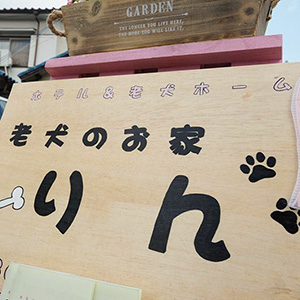 GARDEN
THE LONGER YOU LIVE HERE,
THE MORE YOU WILL LIKE IT.
ホテル&老犬ホーム
老犬のお家
りん